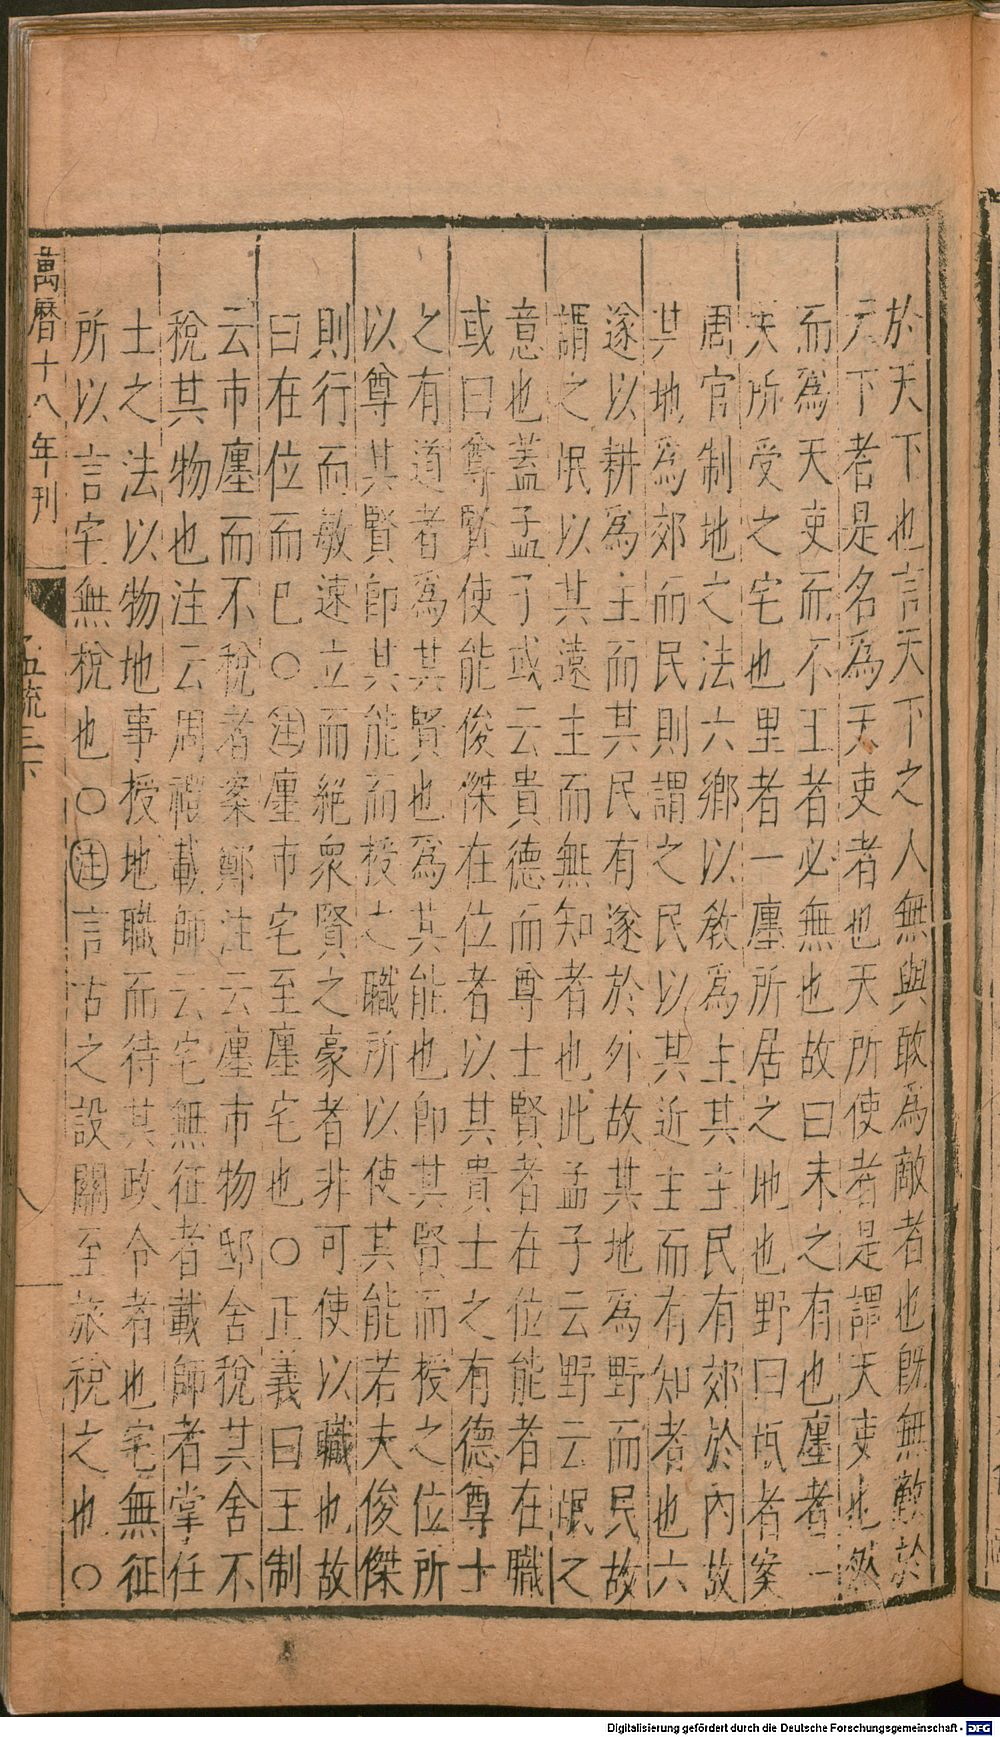 於天下也言天下之人無與敢爲敵者也旣無敵於
天下者是名爲天吏者也天所使者是謂天吏也然
而爲天吏而不王者必無也故曰未之有也廛者一
夫所受之宅也里者一廛所居之地也野曰氓者案
周官制地之法六鄉以敎爲主其主民有郊於內故
其地爲郊而民則謂之民以其近主而有知者也六
遂以耕爲主而其民有遂於外故其地爲野而民故
謂之氓以其遠主而無知者也此孟子云野云氓之
意也蓋孟子或云貴德而尊士賢者在位能者在職
或曰尊賢使能俊傑在位者以其貴士之有德尊士
之有道者爲其賢也爲其能也卽其賢而授之位所
以尊其賢卽其能而授之職所以使其能若夫俊傑
則行而敏速立而絕衆賢之豪者非可使以職也故
曰在位而已○注廛市宅至廛宅也○正義曰王制
云市廛而不稅者案鄭注云廛市物邸舍稅其舍不
稅其物也注云周禮載師云宅無征者載師者掌任
土之法以物地事授地職而待其政令者也宅無征
所以言宅無稅也○注言古之設關至旅稅之也○
萬曆十八年刊
子五疏三下
八
Digitalisierung gefördert durch die Deutsche Forschungsgemeinschaft - DFG